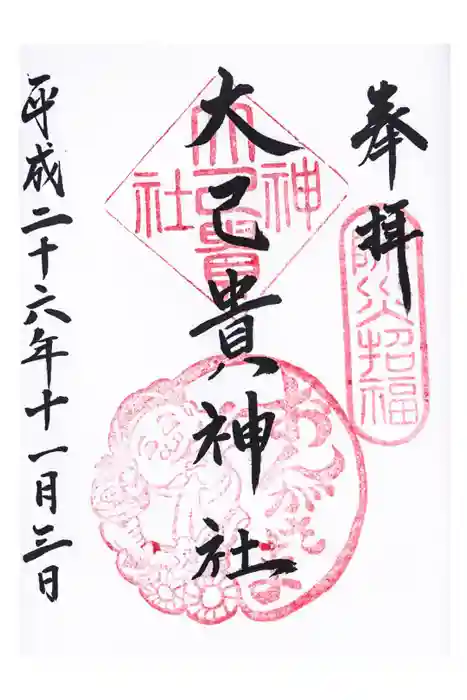 奉拝
除災招福
大己貴神社
大己貴
神社
平成二十六年十一月三日